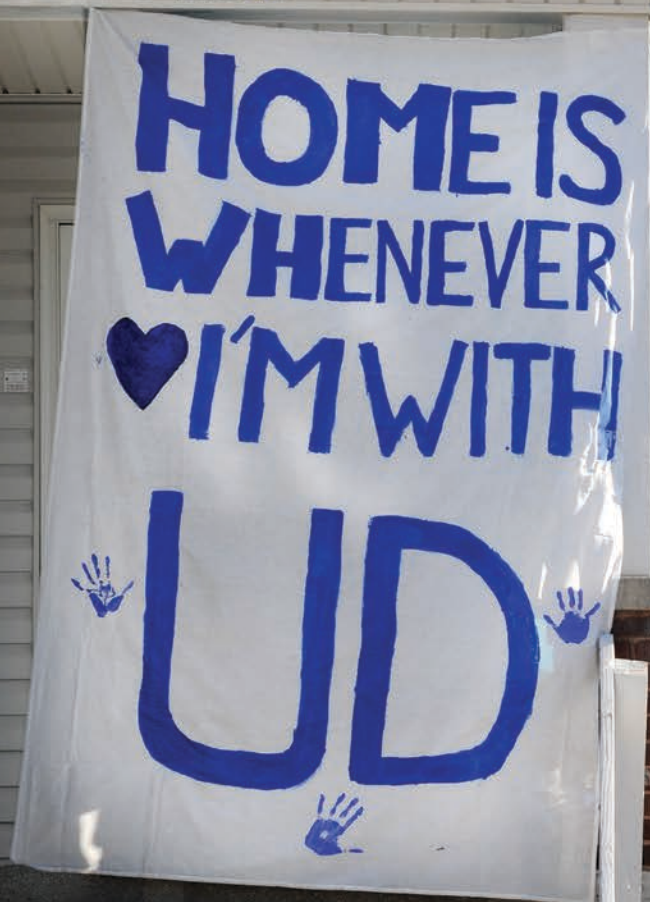 HOME IS
WHENEVER
I'M WITH
UD